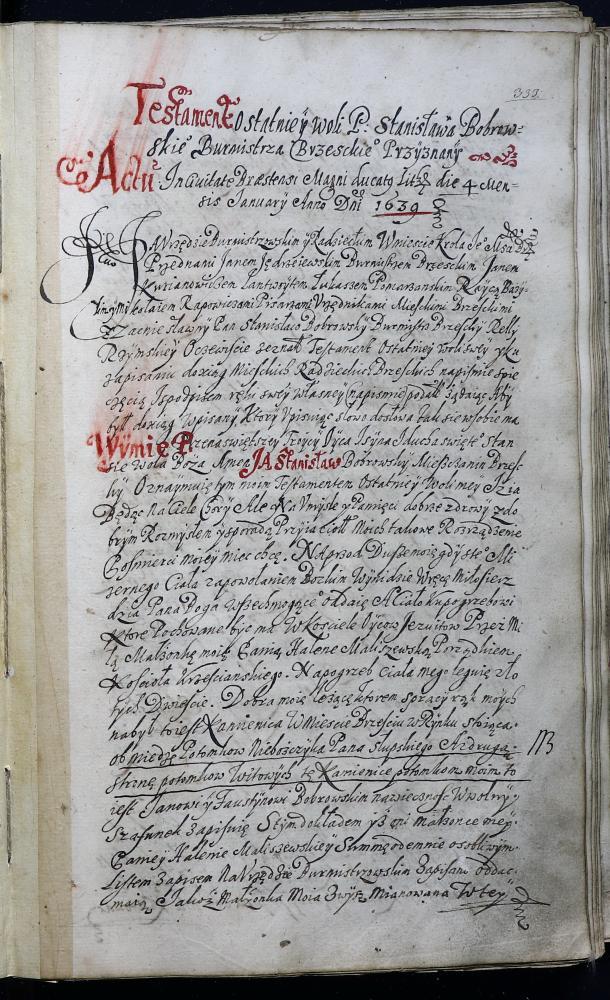 332
Testament Ostatniey Woli P. Stanisława Bobrow=
skie Burmistrza Brzeskie Przyznany
Actu In Civitate Bræstensi Magni Ducatq Litt die 4 Men=
sis January Anno Dni 1639
Na Vrzędzie Burmistrzowskim y Radzieckim W miescie Krola Je Msci
Przed nami Janem Jędrzeiewskim Burmistrzem Brzeskim Janem
Kurianowiczem Lantwoytem Łukaszem Pomarzanskim Raycą
Mikołaiem Rapowiczami Pisarzami Vrzędnikami Mieskimi Brzeskimi
Zacnie sławny Pan Stanisław Bobrowsky Burmistrz Brzesky Relly
Rzymskiey Oczewiscie zeznał Testament Ostatniey woli swey y ku
zapisaniu do xiąg Mieskich Radzieckich Brzeskich na pismie s pie
częcią y s podpisem ręki swey własney (napismie) podał żądaiąc Aby
był do xiąg wpisany Ktory Vpisuiąc słowo do słowa tak sie w sobie ma
Wymię Przenaswiętszey Troycy Oyca Isyna Iducha swięte Stan
sie wola Boża Amen JA Stanisław Bobrowsky Mieszczanin Brzes
ky Oznaymuię tym moim Testamentem Ostatniey Woli mey Iż ia
Będąc na Ciele Chory Ale Na Vmysle y Pamięci dobrze zdrowy z do
brym Rozmysłem y s poradą Przyiacioł Moich takowe Rozrządzenie
Po smierci moiey miec chcę. Naprzod Duszę moię gdy sto Mi
zernego Ciała za powołaniem Bozkim Wynidzie W ręce Miłosierz
dzia Pana Boga Wszechmogące oddaię A Ciało ku pogrzebowi
Ktore Pochowane byc ma W Kosciele Oycow Jezuitow Przez Mi
łą Małżonkę moię Panią Halenę Maliszewską Porządkiem
Koscioła Krzescianskiego. Na pogrzeb Ciała mego leguię zło
tych Dwiescie. Dobra moie leżące ktorem s pracy rąk moich
nabył to iest Kamienica W Miescie Brzesciu w Rynku stoiąca
ob miedzę Potomkow Nieboszczyka Pana Słupskiego A z drugą
stronę potomkow Witowych tę Kamienicę potomkom moim to
NB
iest Janowi y Faustynowi Bobrowskim na wiecznosc W wolny y
szafunek Zapisuię S tym dokładem yż oni małżonce mey
Paniey Halenie Maliszewskiey Summę odemnie osobliwym
Listem Zapisem Na Vrzędzie Burmistrzowskim Zapisaną oddac
maią Jakoż Małżonka Moia Zwysz Mianowana W tey